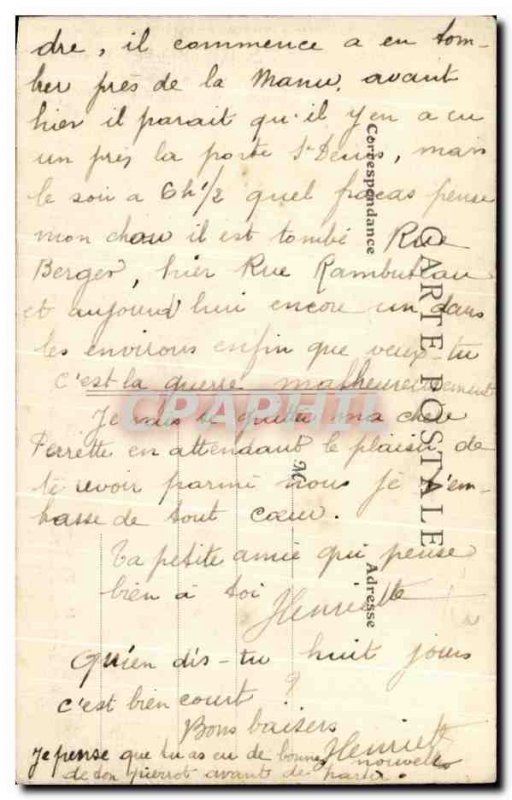 dre, il commence a en tom-
ber près de la Manu, avant
hier il parait qu'il y en a eu
un près la porte St Denis, mais
le soir a 6h 1/2 quel fracas pense
mon chou il est tombé Rue
Berger, hier Rue Rambuteau
et aujourd'hui encore un dans
les environs enfin que veux-tu
c'est la guerre malheureusement
Je vais te quitter ma chère
Perrette en attendant le plaisir de
te revoir parmi nous je t'em-
basse de tout cœur.
Ta petite amie qui pense
bien à toi
Henriette
Qu'en dis-tu huit jours
c'est bien court ?
Bons baisers
Henriette
Je pense que tu as eu de bonnes nouvelles
de ton pierrot avant de partir.
CARTE POSTALE
Correspondance
Adresse
M
CPAPHIL